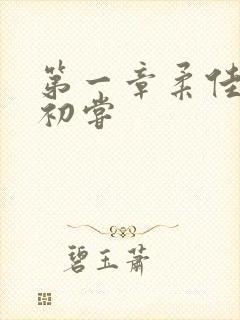 第一章柔佳
初尝
碧玉萧